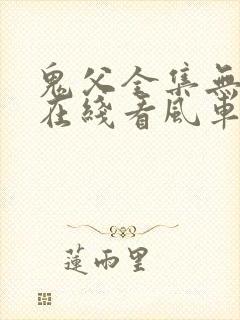 鬼父全集無
在綫看風車
蓮雨里